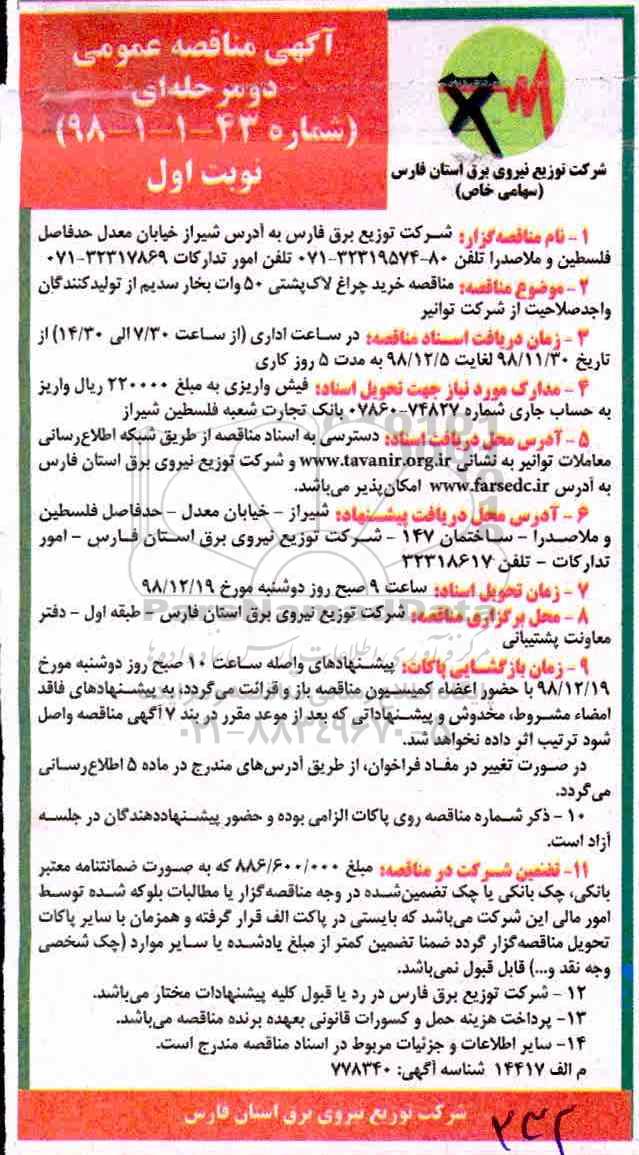 آگهی مناقصه عمومی
دومرحله‌ای
(شماره ۴۳-۱-۱-۹۸)
نوبت اول
شرکت توزیع نیروی برق استان فارس
(سهامی خاص)
۱- نام مناقصه‌گزار: شرکت توزیع برق فارس به آدرس شیراز خیابان معدل حدفاصل
فلسطین و ملاصدرا تلفن ۸۰-۳۲۳۱۹۵۷۴-۰۷۱ تلفن امور تدارکات ۳۲۳۱۷۸۶۹-۰۷۱
۲- موضوع مناقصه: مناقصه خرید چراغ لاک‌پشتی ۵۰ وات بخار سدیم از تولیدکنندگان
واجدصلاحیت از شرکت توانیر
۳- زمان دریافت اسناد مناقصه: در ساعت اداری (از ساعت ۷/۳۰ الی ۱۴/۳۰) از
تاریخ ۹۸/۱۱/۳۰ لغایت ۹۸/۱۲/۵ به مدت ۵ روز کاری
۴- مدارک مورد نیاز جهت تحویل اسناد: فیش واریزی به مبلغ ۲۲۰۰۰۰ ریال واریز
به حساب جاری شماره ۷۴۸۲۷-۰۷۸۶۰ بانک تجارت شعبه فلسطین شیراز
۵- آدرس محل دریافت اسناد: دسترسی به اسناد مناقصه از طریق شبکه اطلاع‌رسانی
معاملات توانیر به نشانی www.tavanir.org.ir و شرکت توزیع نیروی برق استان فارس
به آدرس www.farsedc.ir امکان‌پذیر می‌باشد.
۶- آدرس محل دریافت پیشنهاد: شیراز - خیابان معدل - حدفاصل فلسطین
و ملاصدرا - ساختمان ۱۴۷ - شرکت توزیع نیروی برق استان فارس - امور
تدارکات - تلفن ۳۲۳۱۸۶۱۷
۷- زمان تحویل اسناد: ساعت ۹ صبح روز دوشنبه مورخ ۹۸/۱۲/۱۹
۸- محل برگزاری مناقصه: شرکت توزیع نیروی برق استان فارس - طبقه اول - دفتر
معاونت پشتیبانی
۹- زمان بازگشایی پاکات: پیشنهادهای واصله ساعت ۱۰ صبح روز دوشنبه مورخ
۹۸/۱۲/۱۹ با حضور اعضاء کمیسیون مناقصه باز و قرائت می‌گردد، به پیشنهادهای فاقد
امضاء مشروط، مخدوش و پیشنهاداتی که بعد از موعد مقرر در بند ۷ آگهی مناقصه واصل
شود ترتیب اثر داده نخواهد شد.
در صورت تغییر در مفاد فراخوان، از طریق آدرس‌های مندرج در ماده ۵ اطلاع‌رسانی
می‌گردد.
۱۰- ذکر شماره مناقصه روی پاکات الزامی بوده و حضور پیشنهاددهندگان در جلسه
آزاد است.
۱۱- تضمین شرکت در مناقصه: مبلغ ۸۸۶/۶۰۰/۰۰۰ که به صورت ضمانتنامه معتبر
بانکی، چک بانکی یا چک تضمین‌شده در وجه مناقصه‌گزار یا مطالبات بلوکه شده توسط
امور مالی این شرکت می‌باشد که بایستی در پاکت الف قرار گرفته و همزمان با سایر پاکات
تحویل مناقصه‌گزار گردد ضمنا تضمین کمتر از مبلغ یادشده یا سایر موارد (چک شخصی
وجه نقد و...) قابل قبول نمی‌باشد.
۱۲- شرکت توزیع برق فارس در رد یا قبول کلیه پیشنهادات مختار می‌باشد.
۱۳- پرداخت هزینه حمل و کسورات قانونی بعهده برنده مناقصه می‌باشد.
۱۴- سایر اطلاعات و جزئیات مربوط در اسناد مناقصه مندرج است.
م الف ۱۴۴۱۷ شناسه آگهی: ۷۷۸۳۴۰
شرکت توزیع نیروی برق استان فارس
۲۳۲
ParsNamadData
۰۲۱-۸۸۳۴۹۶۷۰-۵